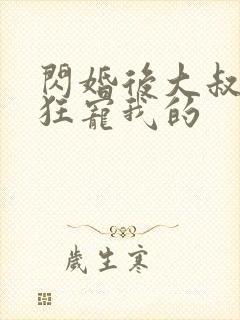 閃婚後大叔
狂寵我的
歲生寒